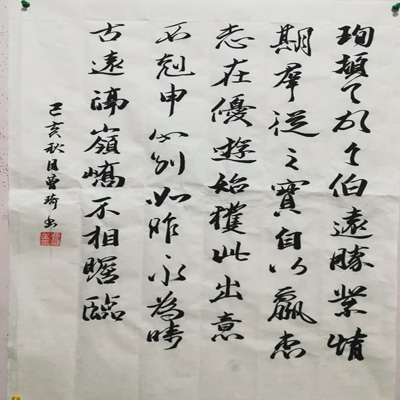 珣頓首頓首伯遠勝業情
期羣從之寶自以羸患
志在優遊始獲此出意
不剋申分別如昨永為疇
古遠隔嶺嶠不相瞻臨
己亥秋月曾琦书